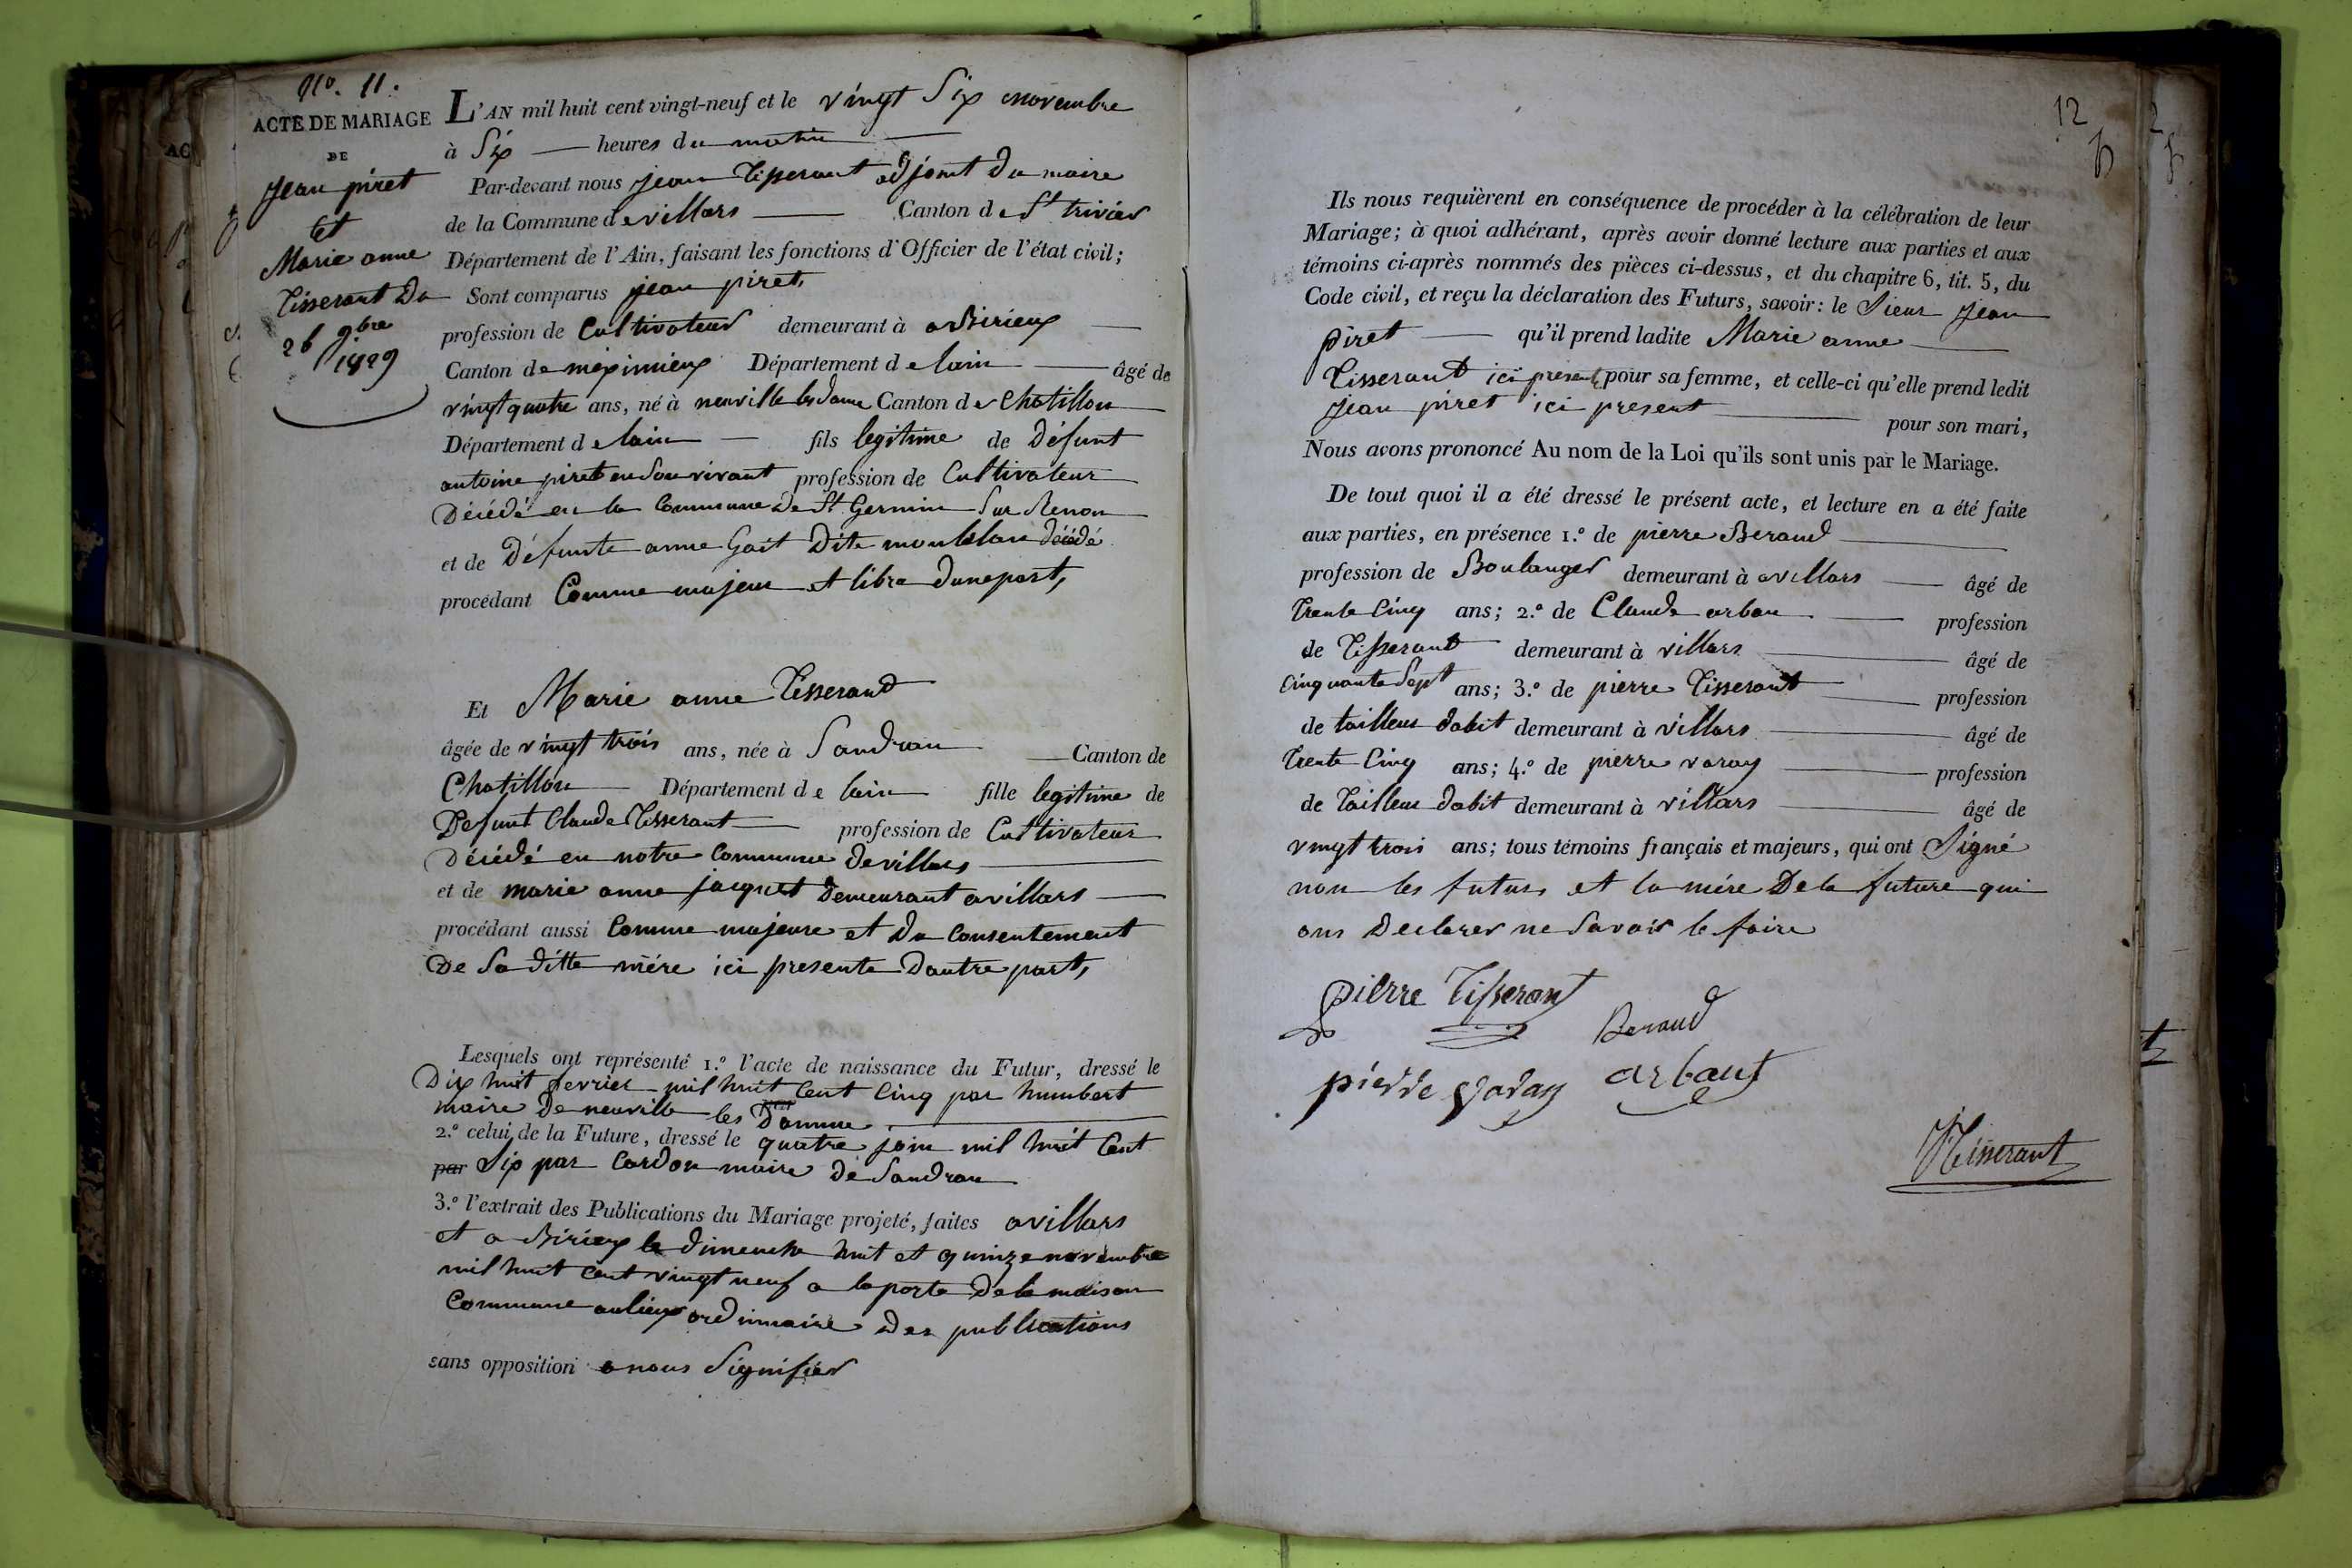 No. 11.
ACTE DE MARIAGE
DE
Jean piret
et
Marie anne
Tisserant Du
26 9bre
1829
L'AN mil huit cent vingt-neuf et le vingt Six novembre
à Six heures du matin
Par-devant nous Jean Tisserant adjoint du maire
de la Commune de villars Canton de St trivier
Département de l'Ain, faisant les fonctions d'Officier de l'état civil;
Sont comparus jean piret,
profession de Cultivateur demeurant à a Birieux
Canton de meximieux Département de lain âgé de
vingt quatre ans, né à neuville les dame Canton de Chatillon
Département de lain fils legitime de Défunt
antoine piret en Son vivant profession de Cultivateur
Décédé en la Commune De St Germin Sur Renon
et de Défunte anne Gait Dite décédé
procédant Comme majeur et libre dune part,
Et Marie anne Tisserand
âgée de vingt trois ans, née à Sandran Canton de
Chatillon Département de lain fille legitime de
Defunt Claude Tisserant profession de Cultivateur
Décédé en notre Commune de villars
et de marie anne jacquet demeurant a villars
procédant aussi Comme majeure et Du Consentement
De Sa ditte mére ici presente Dautre part,
Lesquels ont représenté 1.º l'acte de naissance du Futur, dressé le
Dix huit fevrier mil huit Cent Cinq par humbert
maire De neuville les Damme
2.º celui de la Future, dressé le quatre join mil huit Cent
par Six par Cardon maire de Sandran
3.º l'extrait des Publications du Mariage projeté, faites a villars
et a Birieux le dimenche huit et quinze novembre
mil huit Cent vingt neuf a la porte De la maison
Commune au lieux ordinnaire des publications
sans opposition a nous Signifier
12
Ils nous requièrent en conséquence de procéder à la célébration de leur
Mariage; à quoi adhérant, après avoir donné lecture aux parties et aux
témoins ci-après nommés des pièces ci-dessus, et du chapitre 6, tit. 5, du
Code civil, et reçu la déclaration des Futurs, savoir: le Sieur Jean
piret qu'il prend ladite Marie anne
Tisserant ici presente pour sa femme, et celle-ci qu'elle prend ledit
Jean piret ici present pour son mari,
Nous avons prononcé Au nom de la Loi qu'ils sont unis par le Mariage.
De tout quoi il a été dressé le présent acte, et lecture en a été faite
aux parties, en présence 1.º de pierre Beraud
profession de Boulanger demeurant à a villars âgé de
Trente Cinq ans; 2.º de Claude arban profession
de Tisserant demeurant à villars âgé de
Cinquante Sept ans; 3.º de pierre Tisserant profession
de tailleur dabit demeurant à villars âgé de
Trente Cinq ans; 4.º de pierre varay profession
de Tailleur dabit demeurant à villars âgé de
vingt trois ans; tous témoins français et majeurs, qui ont Signé
non les futurs et la mére De la future qui
ons Declarer ne Savoir le faire
pierre Tisserant
Beraud
pierre Varay arbant
JTisserant